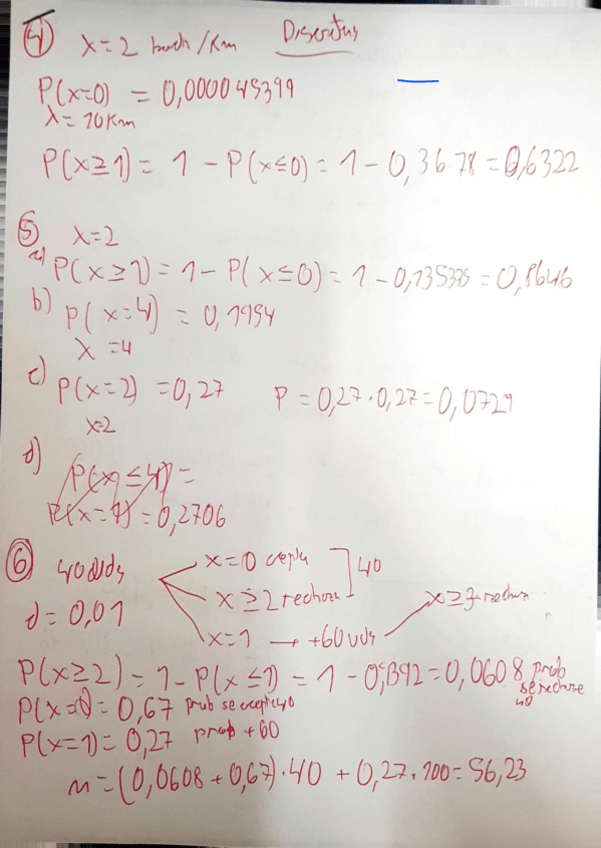 4) λ=2 bach/Km Discretas
P(x=0) = 0,000045399
λ=10Km
P(x≥1) = 1 - P(x≤0) = 1 - 0,3678 = 0,6322
5) λ=2
a) P(x≥1) = 1 - P(x≤0) = 1 - 0,135335 = 0,8646
b) P(x=4) = 0,1954
λ=4
c) P(x=2) = 0,27 P = 0,27·0,27 = 0,0729
λ=2
d) P(x≤4) =
P(x=1) = 0,2706
6) 40 uds x=0 acepta 40
d=0,01 x≥2 rechaza x≥3 rechaza
x=1 → +60 uds
P(x≥2) = 1 - P(x≤1) = 1 - 0,9392 = 0,0608 prob
se rechace
40
P(x=0) = 0,67 prob se acepta 40
P(x=1) = 0,27 prob +60
n = (0,0608 + 0,67)·40 + 0,27·100 = 56,23